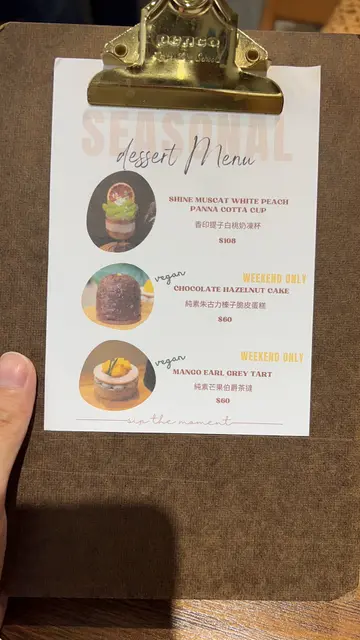 PENCO
SEASONAL
dessert Menu
SHINE MUSCAT WHITE PEACH
PANNA COTTA CUP
香印提子白桃奶凍杯
$108
vegan
WEEKEND ONLY
CHOCOLATE HAZELNUT CAKE
純素朱古力榛子脆皮蛋糕
$60
vegan
WEEKEND ONLY
MANGO EARL GREY TART
純素芒果伯爵茶撻
$60
sip the moment